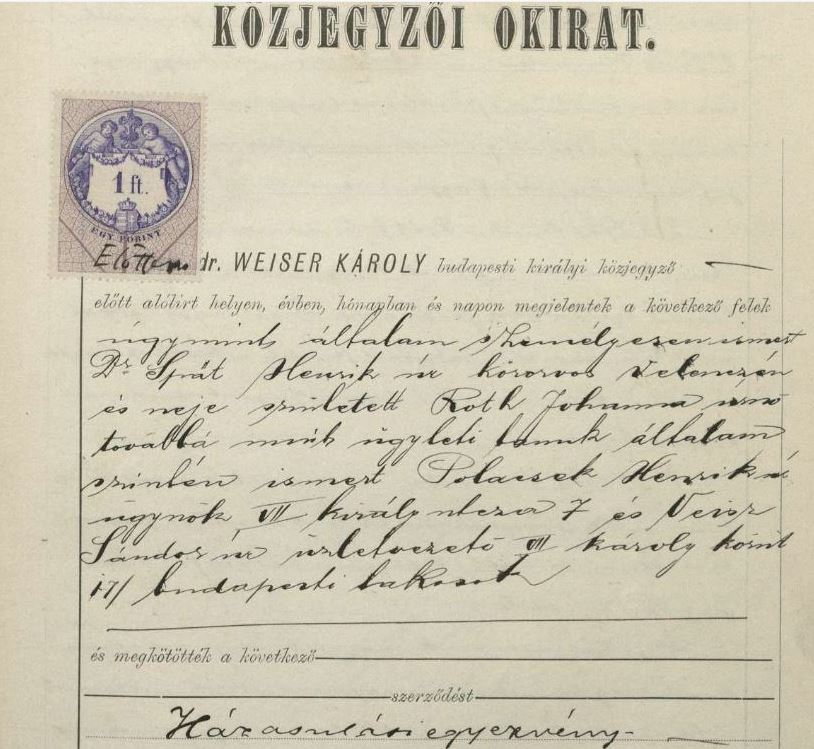 KÖZJEGYZŐI OKIRAT.
1 ft.
EGY FORINT
Előttem dr. WEISER KÁROLY budapesti királyi közjegyző
előtt alólirt helyen, évben, hónapban és napon megjelentek a következő felek
úgymint általam személyesen ismert
Dr Spät Henrik úr körorvos Velenczén
és neje született Roth Johanna úrnő
továbbá mint ügyleti tanuk általam
szintén ismert Polacsek Henrik úr
ügynök VII király utcza 7 és Veisz
Sándor úr üzletvezető VII károly körút
17/ budapesti lakosok
és megkötötték a következő
szerződést
Házasulási egyezvény